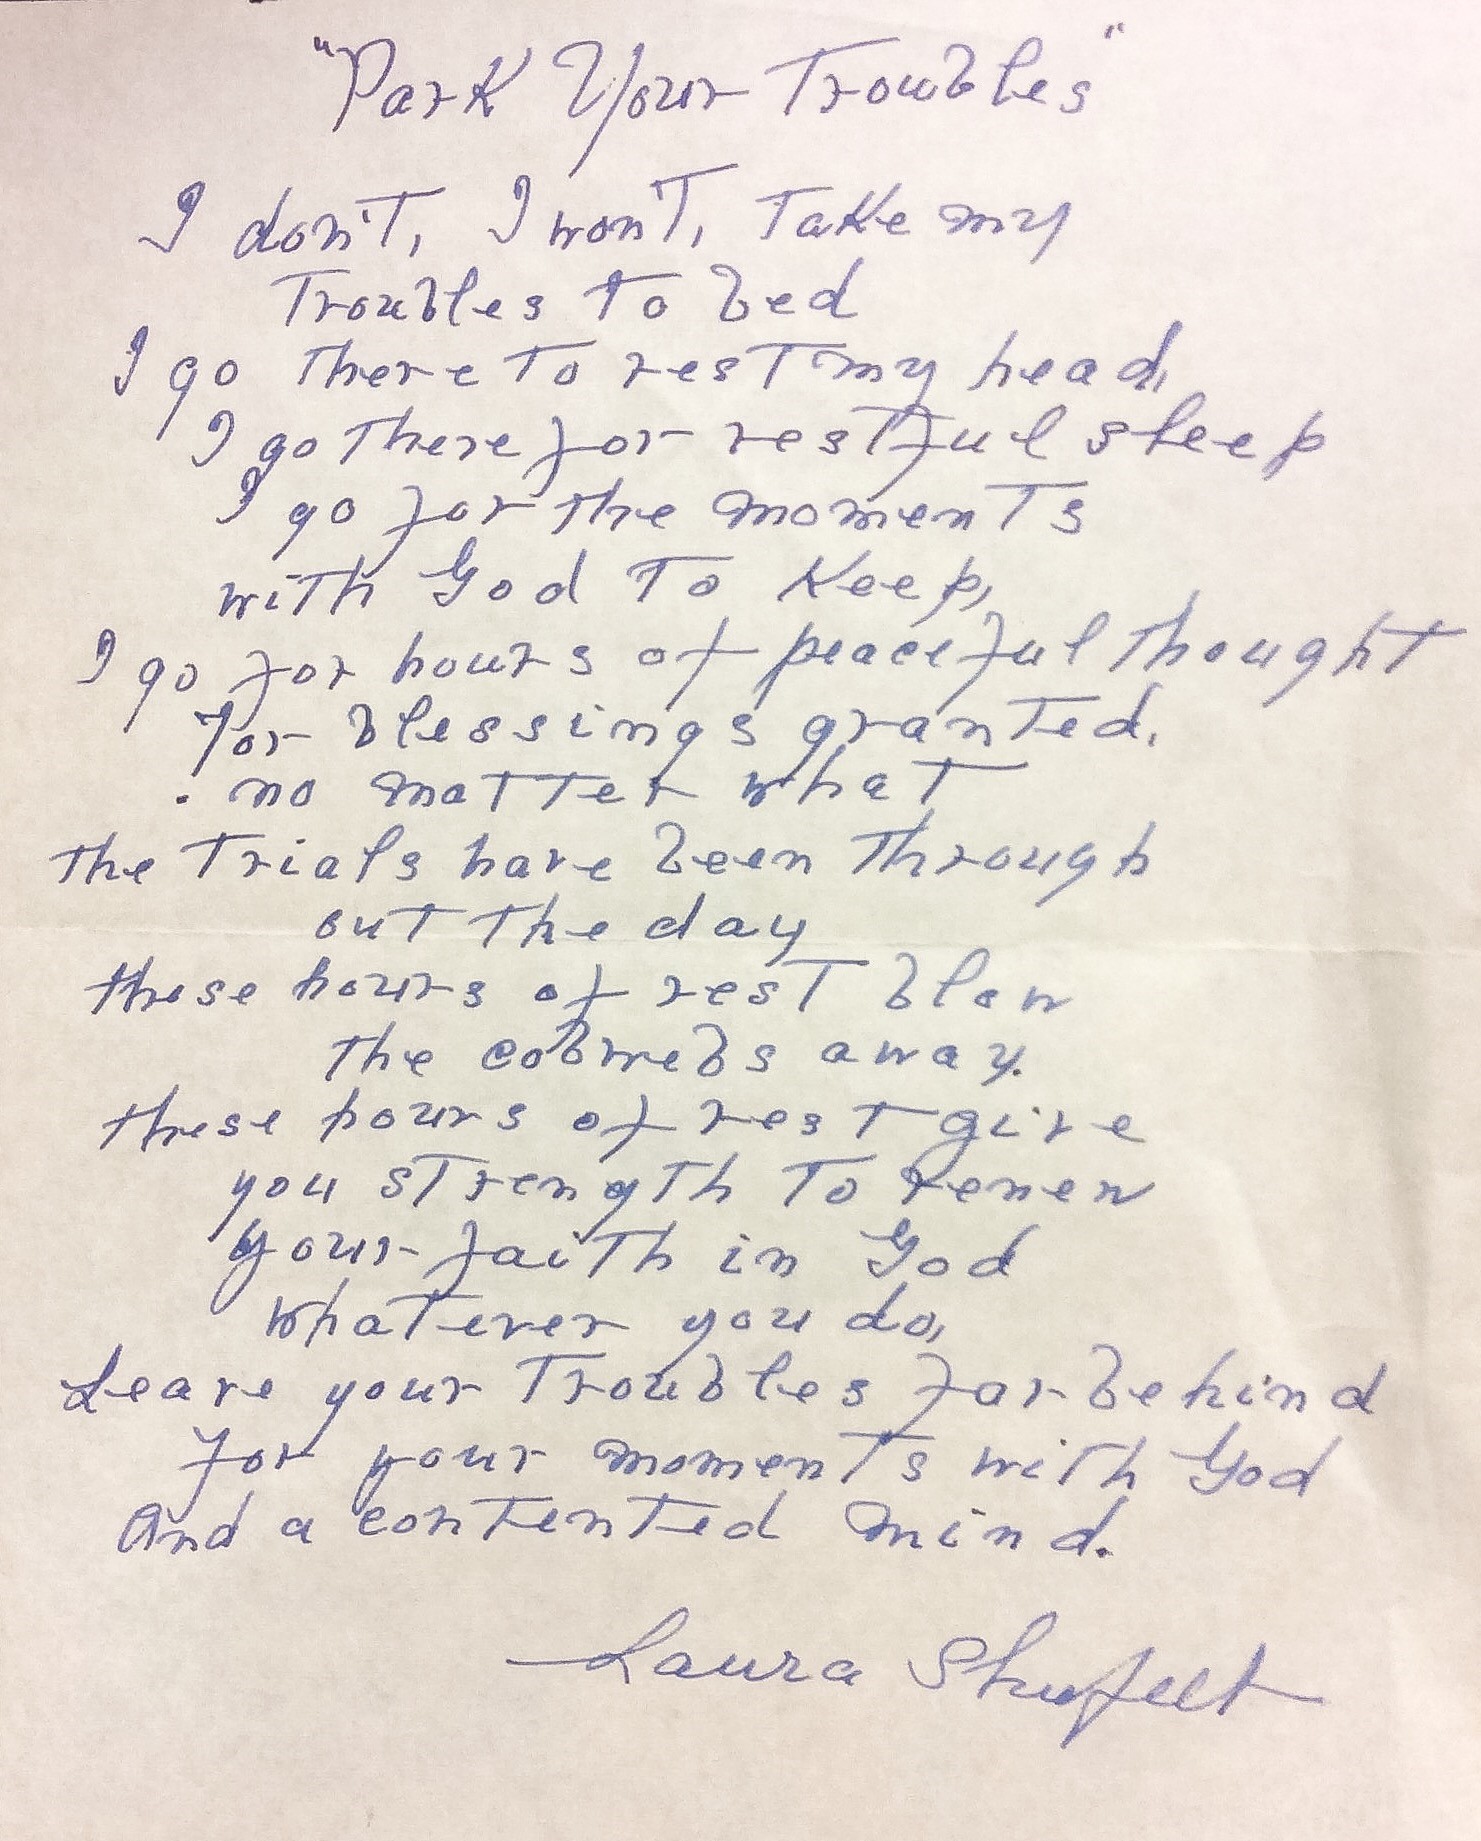 "Park Your Troubles"
I don't, I won't, Take my
Troubles To bed
I go There To rest my head,
I go There for restful sleep
I go for the moments
with God To Keep,
I go for hours of peaceful Thought
For blessings granted.
no matter what
The Trials have been Through
out The day
these hours of rest blow
The cobwebs away.
these hours of rest give
you strength To renew
your faith in God
whatever you do,
Leave your Troubles far behind
For your moments with God
And a contented mind.
Laura Shufelt